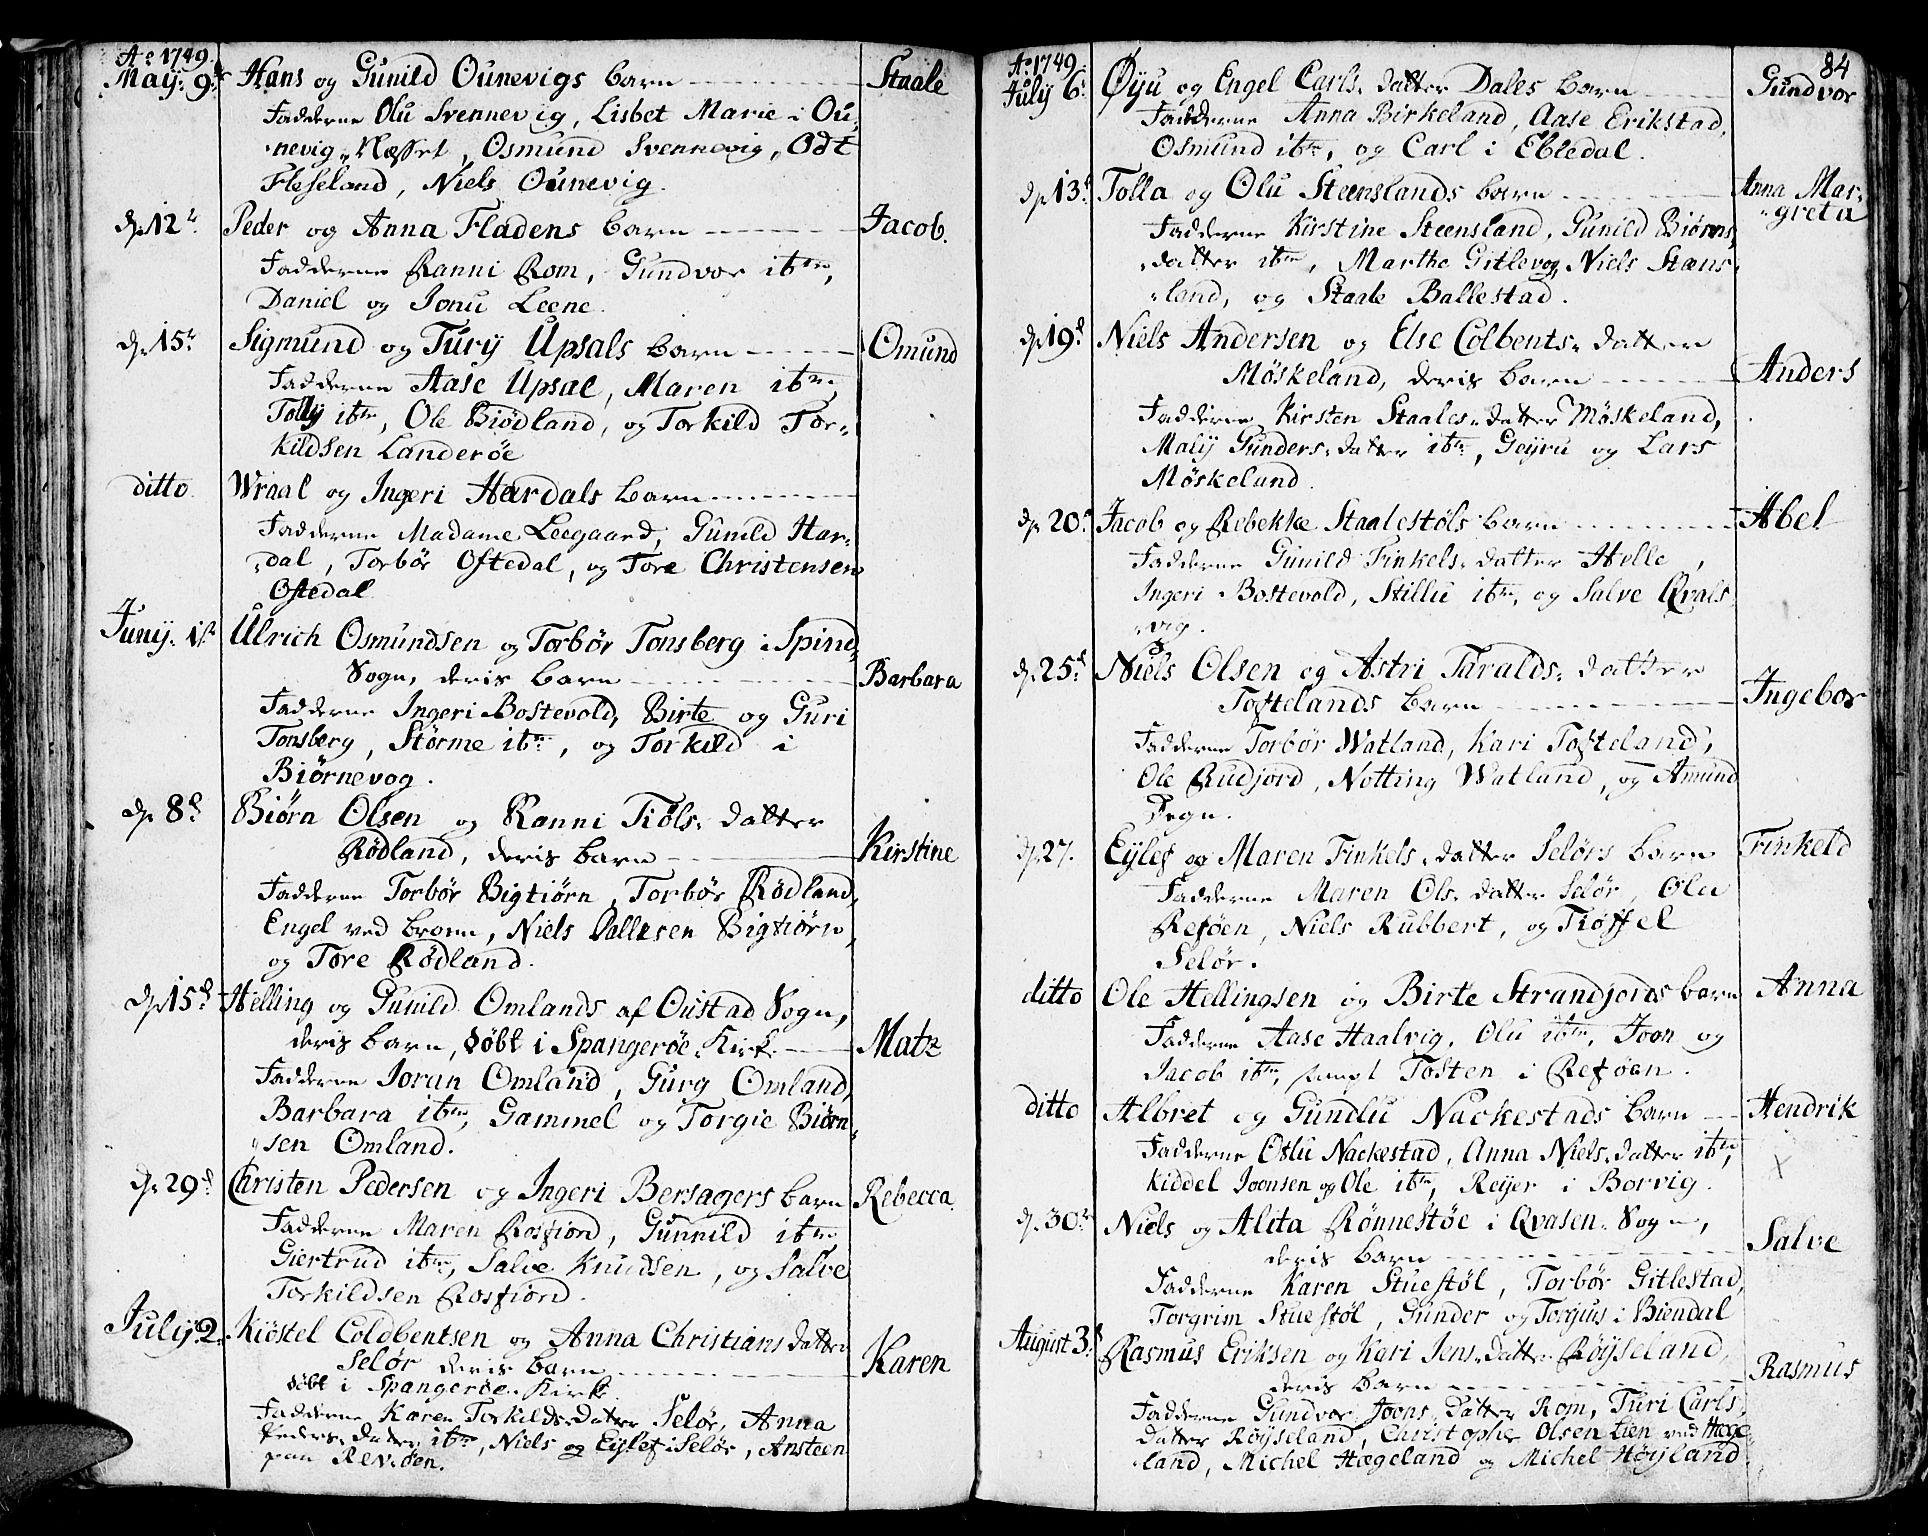 Ao 1749.
May 9d Hans og Gunild Ounevigs barn Staale
Fadderne Olu Svennevig, Lisbet Marie i Ou-
nevig-Næsset, Osmund Svennevig, Odt
Fleseland, Niels Ounevig.
dn 12t Peder og Anna Fladens barn Jacob.
Fadderne Ranni Rom, Gundvor ibm,
Daniel og Jonu Leene.
dn 15t Sigmund og Tury Upsals barn Omund
Fadderne Aase Upsal, Maren ibm,
Tolly ibm, Ole Biødland, og Torkild Tor-
kildsen Landerøe
ditto Wraal og Ingeri Hardals barn
Fadderne Madame Leegaard, Gunild Har-
dal, Torbør Oftedal, og Tore Christensen
Oftedal
Juny. 1st Ulrich Osmundsen og Torbør Tonsberg i Spind-
Sogn, deris barn Barbara
Fadderne Ingeri Bostevold, Birte og Guri
Tonsberg, Størme ibm, og Torkild i
Biørnevog.
dn 8d Biørn Olsen og Ranni Tiøls-datter
Rødland, deris barn Kirstine
Fadderne Torbør Bigtiørn, Torbør Rødland,
Engel ved broen, Niels Pallesen Bigtiørn,
og Tore Rødland.
dn 15d Helling og Gunild Omlands af Oustad Sogn,
deris barn, døbt i Spangerøe Kirk Matz
Fadderne Joran Omland, Gurg Omland,
Barbara ibm, Gammel og Torgie Biørn-
sen Omland.
dn 29d Christen Pedersen og Ingeri Bersagers barn Rebecca
Fadderne Maren Rosfiord, Gunnild ibm
Giertrud ibm, Salve Knudsen, og Salve
Torkildsen Rosfiord.
July 2. Kiøstel Coldbentsen og Anna Christians datter
Selør deris barn Karen
døbt i Spangerøe Kirk
Fadderne Karen Torkilds-datter Selør, Anna
Peders-datter ibm, Niels og Eylef i Selør, Ansteen
paa Revøen.
84
Ao 1749.
July 6. Øyu og Engel Carls-datter Dales barn Gundvor
Fadderne Anna Birkeland, Aase Erikstad,
Osmund ibm, og Carl i Ebledal.
dn 13d Tolla og Olu Steenslands barn Anna Mar-
greta
Fadderne Kirstine Steensland, Gunild Biørns-
datter ibm, Marthe Gitlevog, Niels Stæns-
land, og Staale Ballestad.
dn 19d Niels Andersen og Else Colbents-datter
Møskeland, deris barn Anders
Fadderne Kirsten Staales-datter Møskeland,
Maly Gunders-datter ibm, Geyru og Lars
Møskeland.
dn 20. Jacob og Rebekke Staalestøls barn Abel
Fadderne Gunild Finkels-datter Helle,
Ingeri Bostevold, Stillu ibm, og Salve Qvals-
vig.
dn 25d Niels Olsen og Astri Taralds-datter
Toftelands barn Ingebor
Fadderne Torbør Watland, Kari Tofteland,
Ole Rudjord, Notting Watland, og Amund
Degn.
dn 27. Eylef og Maren Finkels-datter Selørs barn Finkeld
Fadderne Maren Ols-datter Selør, Olu
Reføen, Niels Rubbert, og Tiøffel
Selør.
ditto Ole Hellingsen og Birte Strandjords barn Anna
Fadderne Aase Haalvig, Olu ibm, Joon og
Jacob ibm, sampt Tosten i Reføen.
ditto Albret og Gundlu Nackestads barn Hendrik
Fadderne Oslu Nackestad, Anna Niels-datter ibm,
Kiddel Joonsen og Ole ibm, Reyer i Borvig.
dn 30t Niels og Alita Rønnestøe i Qvasen-Sogn,
deris barn Salve
Fadderne Karen Stuestøl, Torbør Gitlestad,
Torgrim Stuestøl, Gunder og Torjus i Biendal
August 3d Rasmus Eriksen og Kari Jens-datter Røyseland,
deris barn Rasmus
Fadderne Gundvor Joons-datter Rom, Turi Carls-
datter Røyseland, Christopher Olsen Lien ved Hæge-
land, Michel Hægeland og Michel Høyland